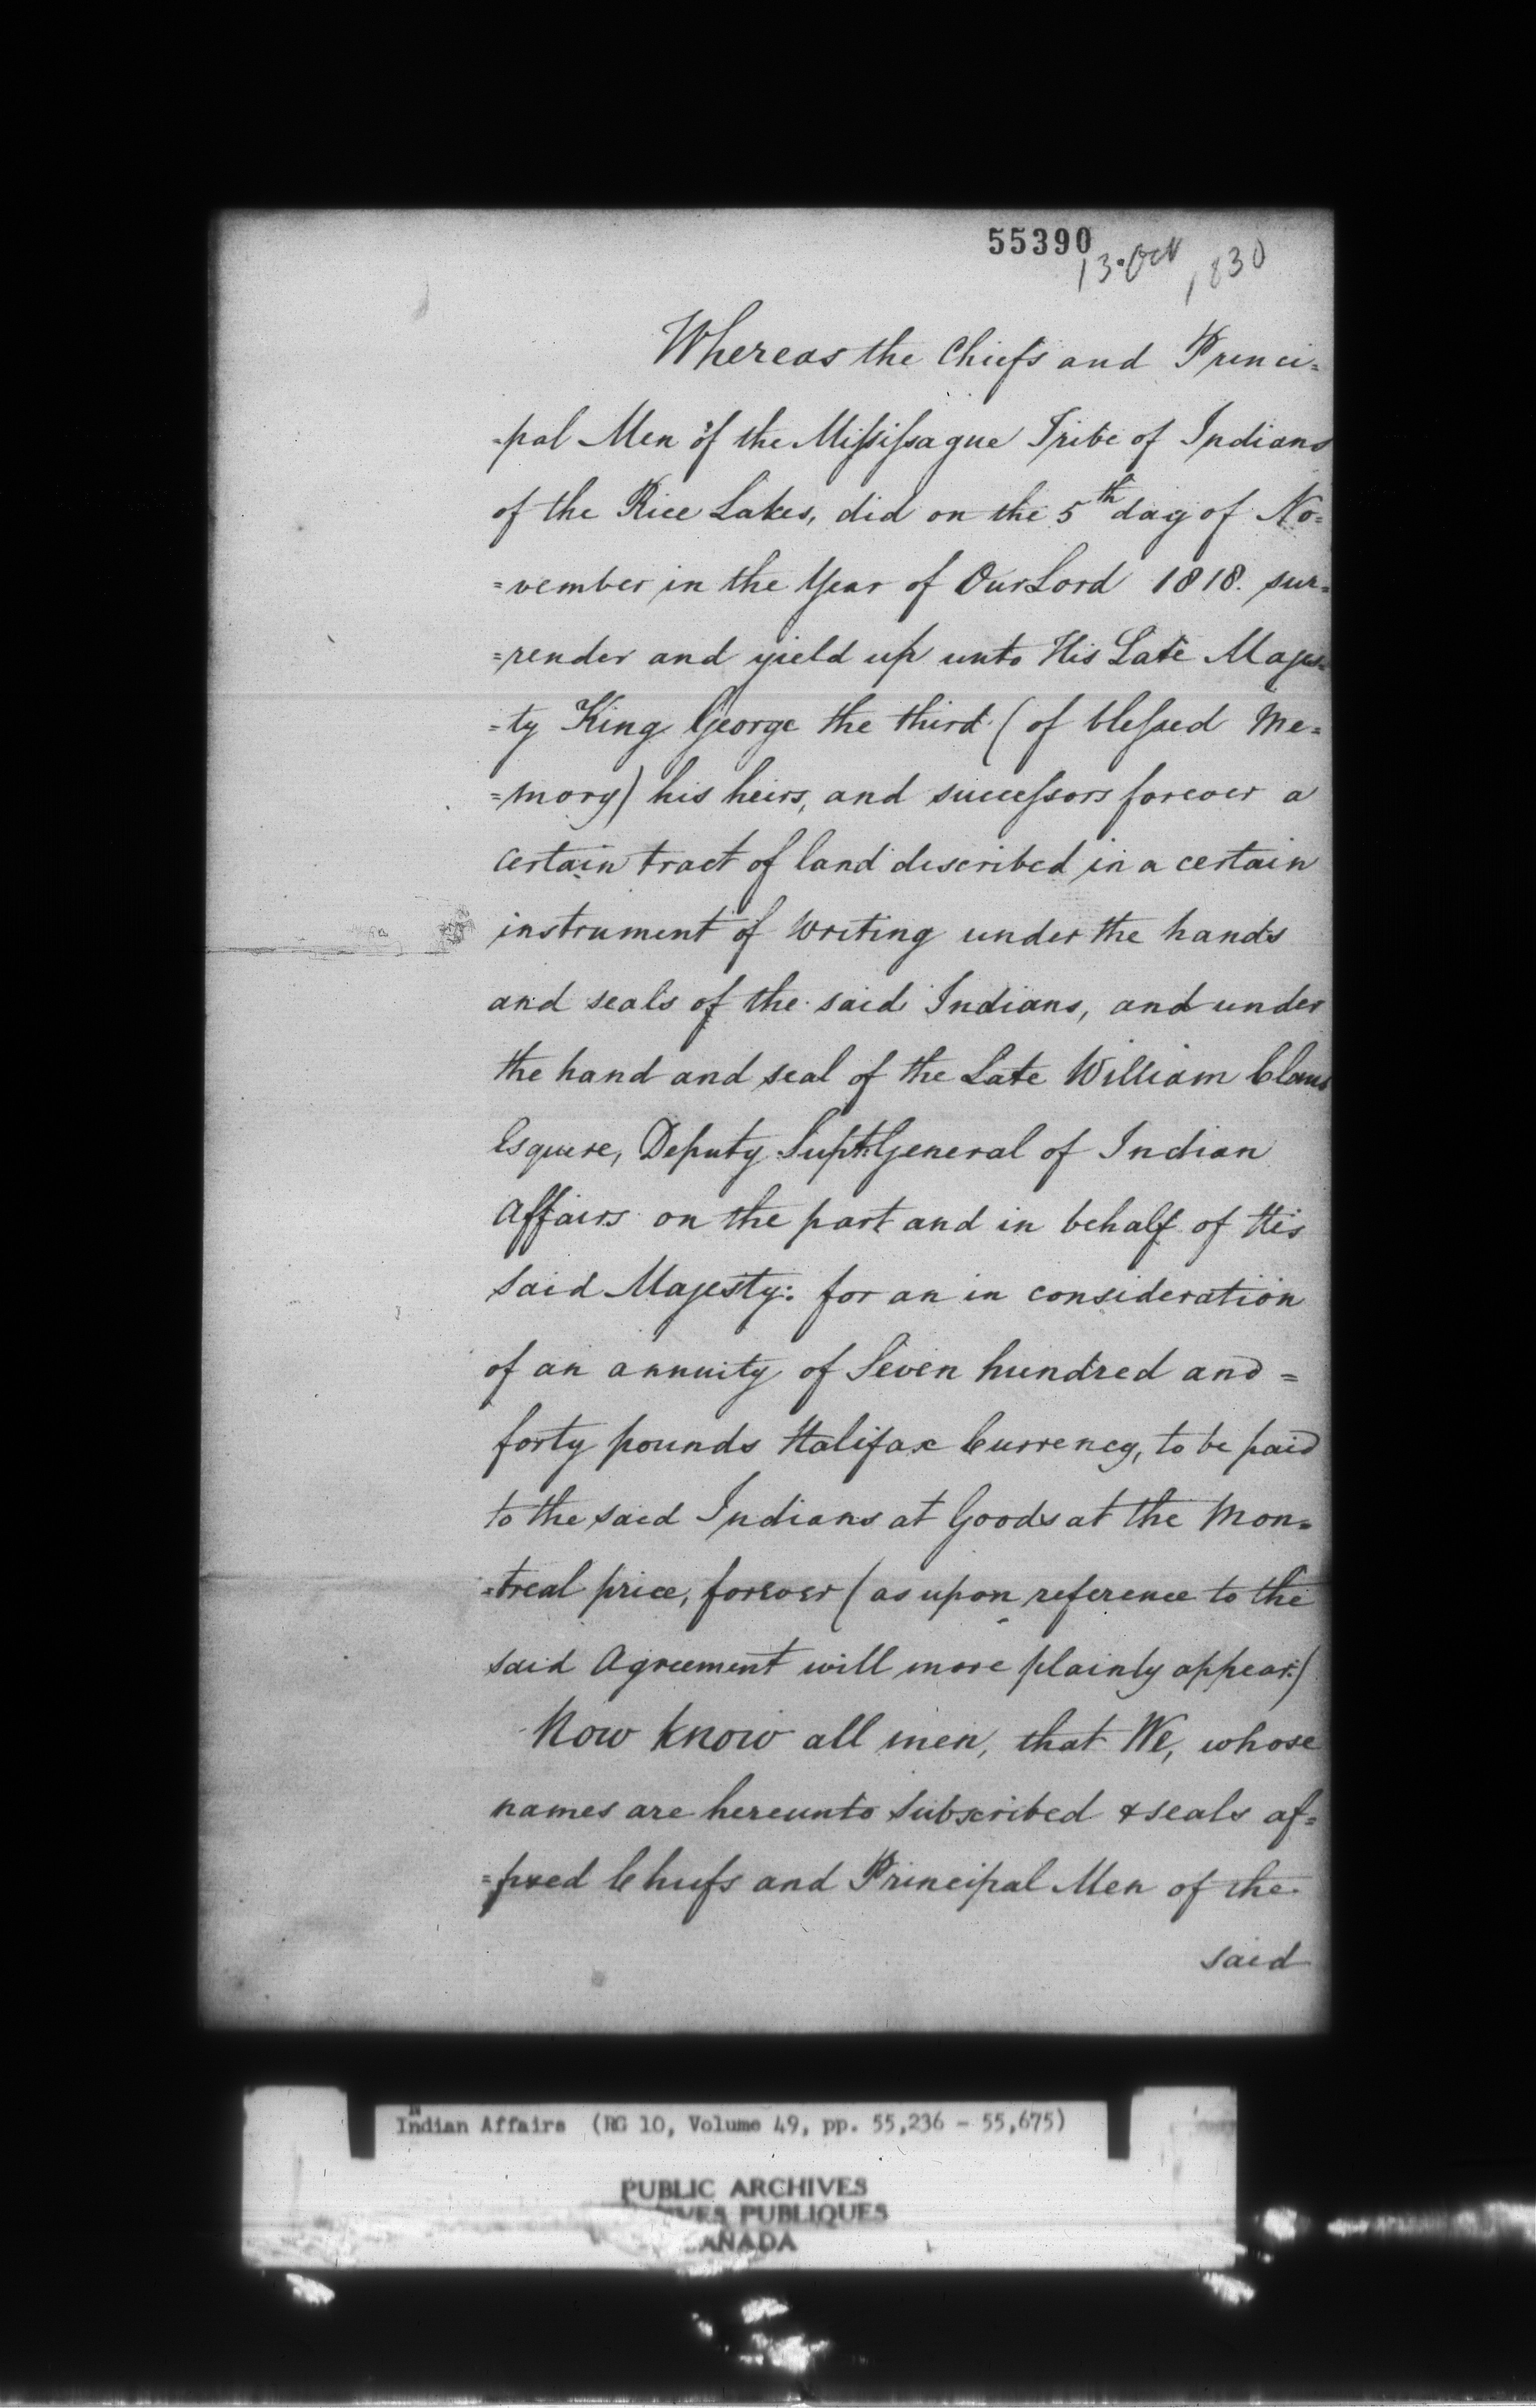 55390
13. Oct 1830
Whereas the Chiefs and Princi=
=pal Men of the Missisague Tribe of Indians
of the Rice Lakes, did on the 5th day of No=
=vember in the Year of Our Lord 1818. sur=
=render and yield up unto His Late Majes=
=ty King George the third (of blessed Me=
=mory) his heirs, and successors forever a
certain tract of land described in a certain
instrument of Writing under the hands
and seals of the said Indians, and under
the hand and seal of the Late William Claus
Esquire, Deputy Supt. General of Indian
Affairs on the part and in behalf of His
Said Majesty: for an in consideration
of an annuity of Seven hundred and =
forty pounds Halifax Currency, to be paid
to the said Indians at Goods at the Mon=
=treal price, forever (as upon reference to the
said Agreement will more plainly appear.)
Now know all men, that We, whose
names are hereunto Subscribed & seals af=
=fixed Chiefs and Principal Men of the
said
Indian Affairs (RG 10, Volume 49, pp. 55,236 - 55,675)
PUBLIC ARCHIVES
PUBLIQUES
CANADA